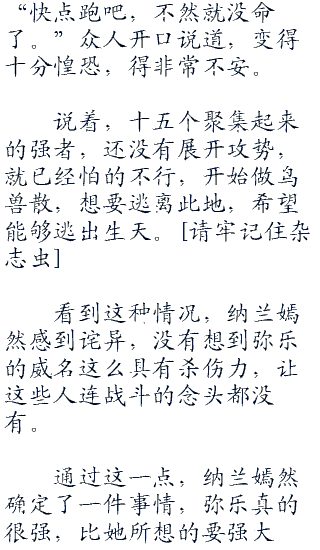 “快点跑吧，不然就没命
了。”众人开口说道，变得
十分惶恐，得非常不安。
说着，十五个聚集起来
的强者，还没有展开攻势，
就已经怕的不行，开始做鸟
兽散，想要逃离此地，希望
能够逃出生天。[请牢记住杂
志虫]
看到这种情况，纳兰嫣
然感到诧异，没有想到弥乐
的威名这么具有杀伤力，让
这些人连战斗的念头都没
有。
通过这一点，纳兰嫣然
确定了一件事情，弥乐真的
很强，比她所想的要强大